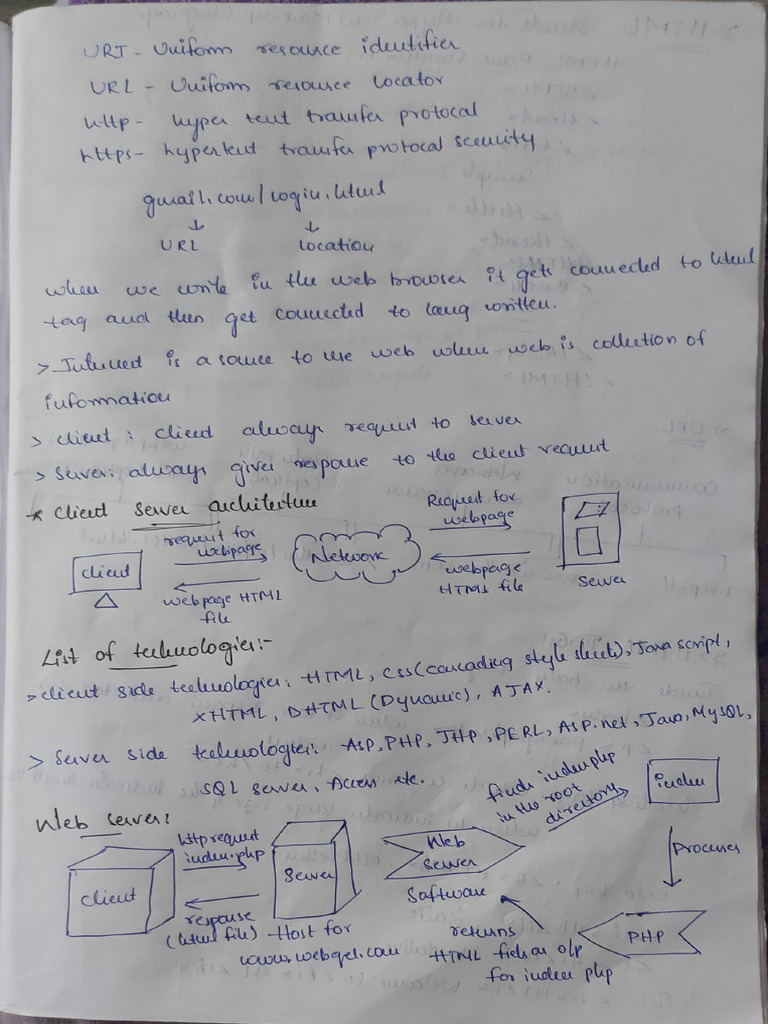 URI - Uniform resource identifier
URL - Uniform resource Locator
http - hyper text transfer protocal
https - hypertext transfer protocal security
gmail.com/login.html
↓ ↓
URL location
when we write in the web browser it gets connected to html
tag and then get connected to lang written.
> Internet is a source to use web when web is collection of
information
> client : client always request to server
> server: always gives response to the client request
* Client server architecture
request for
webpage
Request for
webpage
client
Network
webpage HTML
file
webpage
HTML file
Server
List of technologies:-
> client side technologies: HTML, CSS (cascading style sheets), Java script,
XHTML, DHTML (Dynamic), AJAX.
> Server side technologies: ASP, PHP, JHP, PERL, ASP.net, Java, MySQL,
SQL server, Access etc.
Web server:
http request
index.php
client
Server
response
(html file)
- Host for
Web
Server
Software
finds index.php
in the root
directory
index
Processes
PHP
returns
HTML O/p
for index php